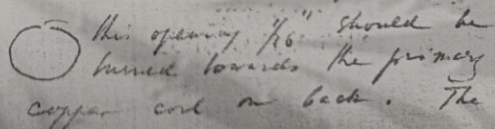 this opening 1/16" should be
turned towards the primary
copper coil on back. The